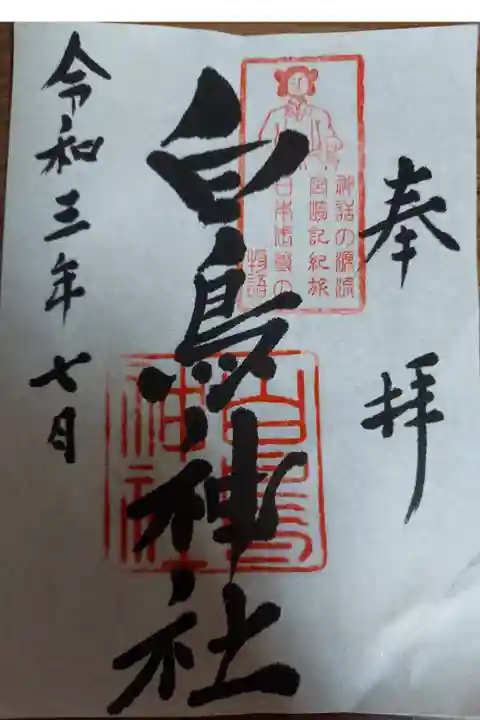 奉拝
神話の源流
宮崎記紀旅
日本の
物語
白鳥神社
白鳥
神社
令和三年七月